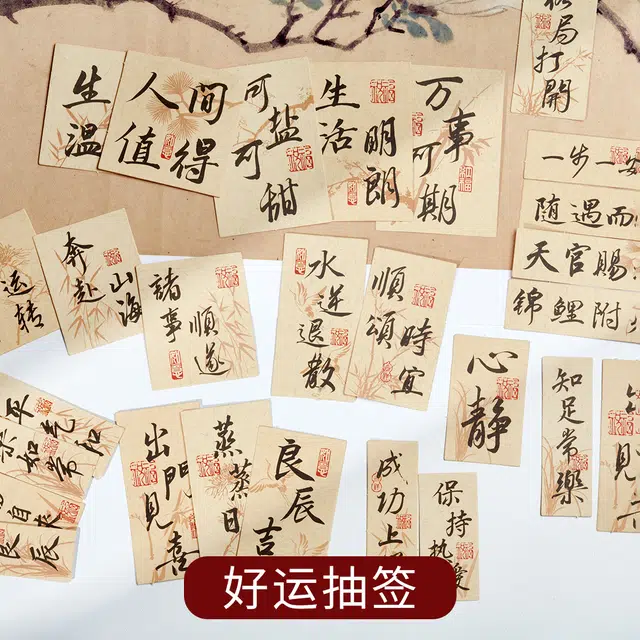 格局打開
生
温
人間
值得
可盐
可甜
生活
明朗
万事
可期
一步一
随遇而
天官赐
锦鲤附
运转
奔赴
山海
諸事
順遂
水逆
退散
順頌
時宜
心静
知足常樂
出門
見喜
蒸蒸
日
良辰
吉
成功上
保持
热爱
自在
良辰
好运抽签